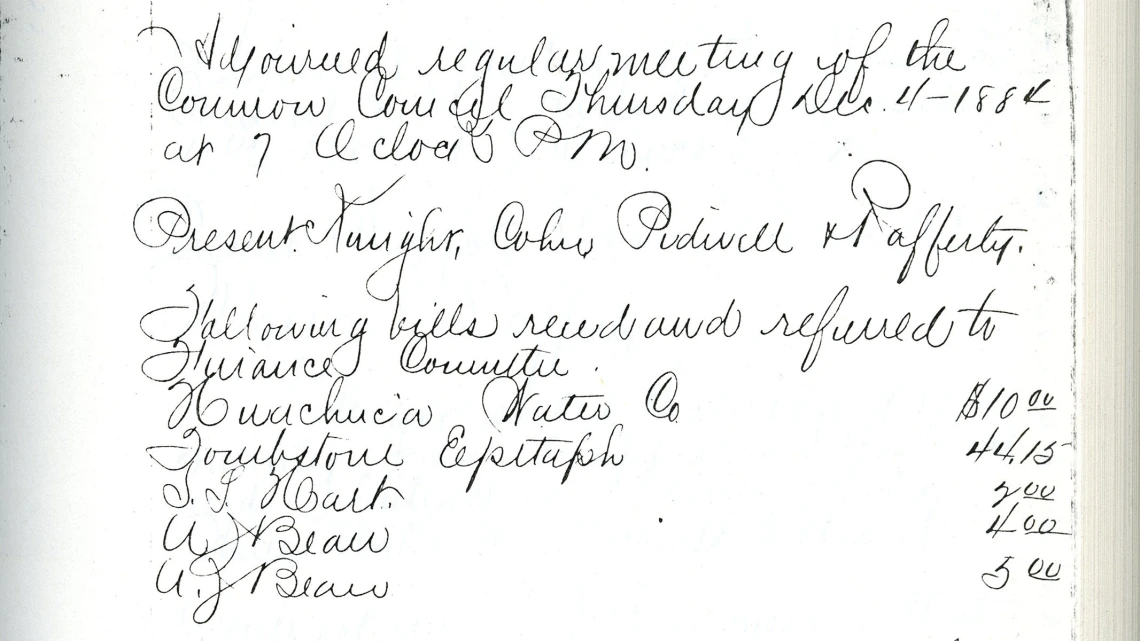 Adjourned regular meeting of the
Common Council Thursday Dec. 4-1884
at 7 O clock P M.
Present. Knight, Cohn, Pidwell & Rafferty.
Following bills recd and referred to
Finance Committee.
Huachuca Water Co $10 00
Tombstone Epitaph 44.15
S. L Hart. 2 00
A J Bean 4 00
A. J Bean 5 00